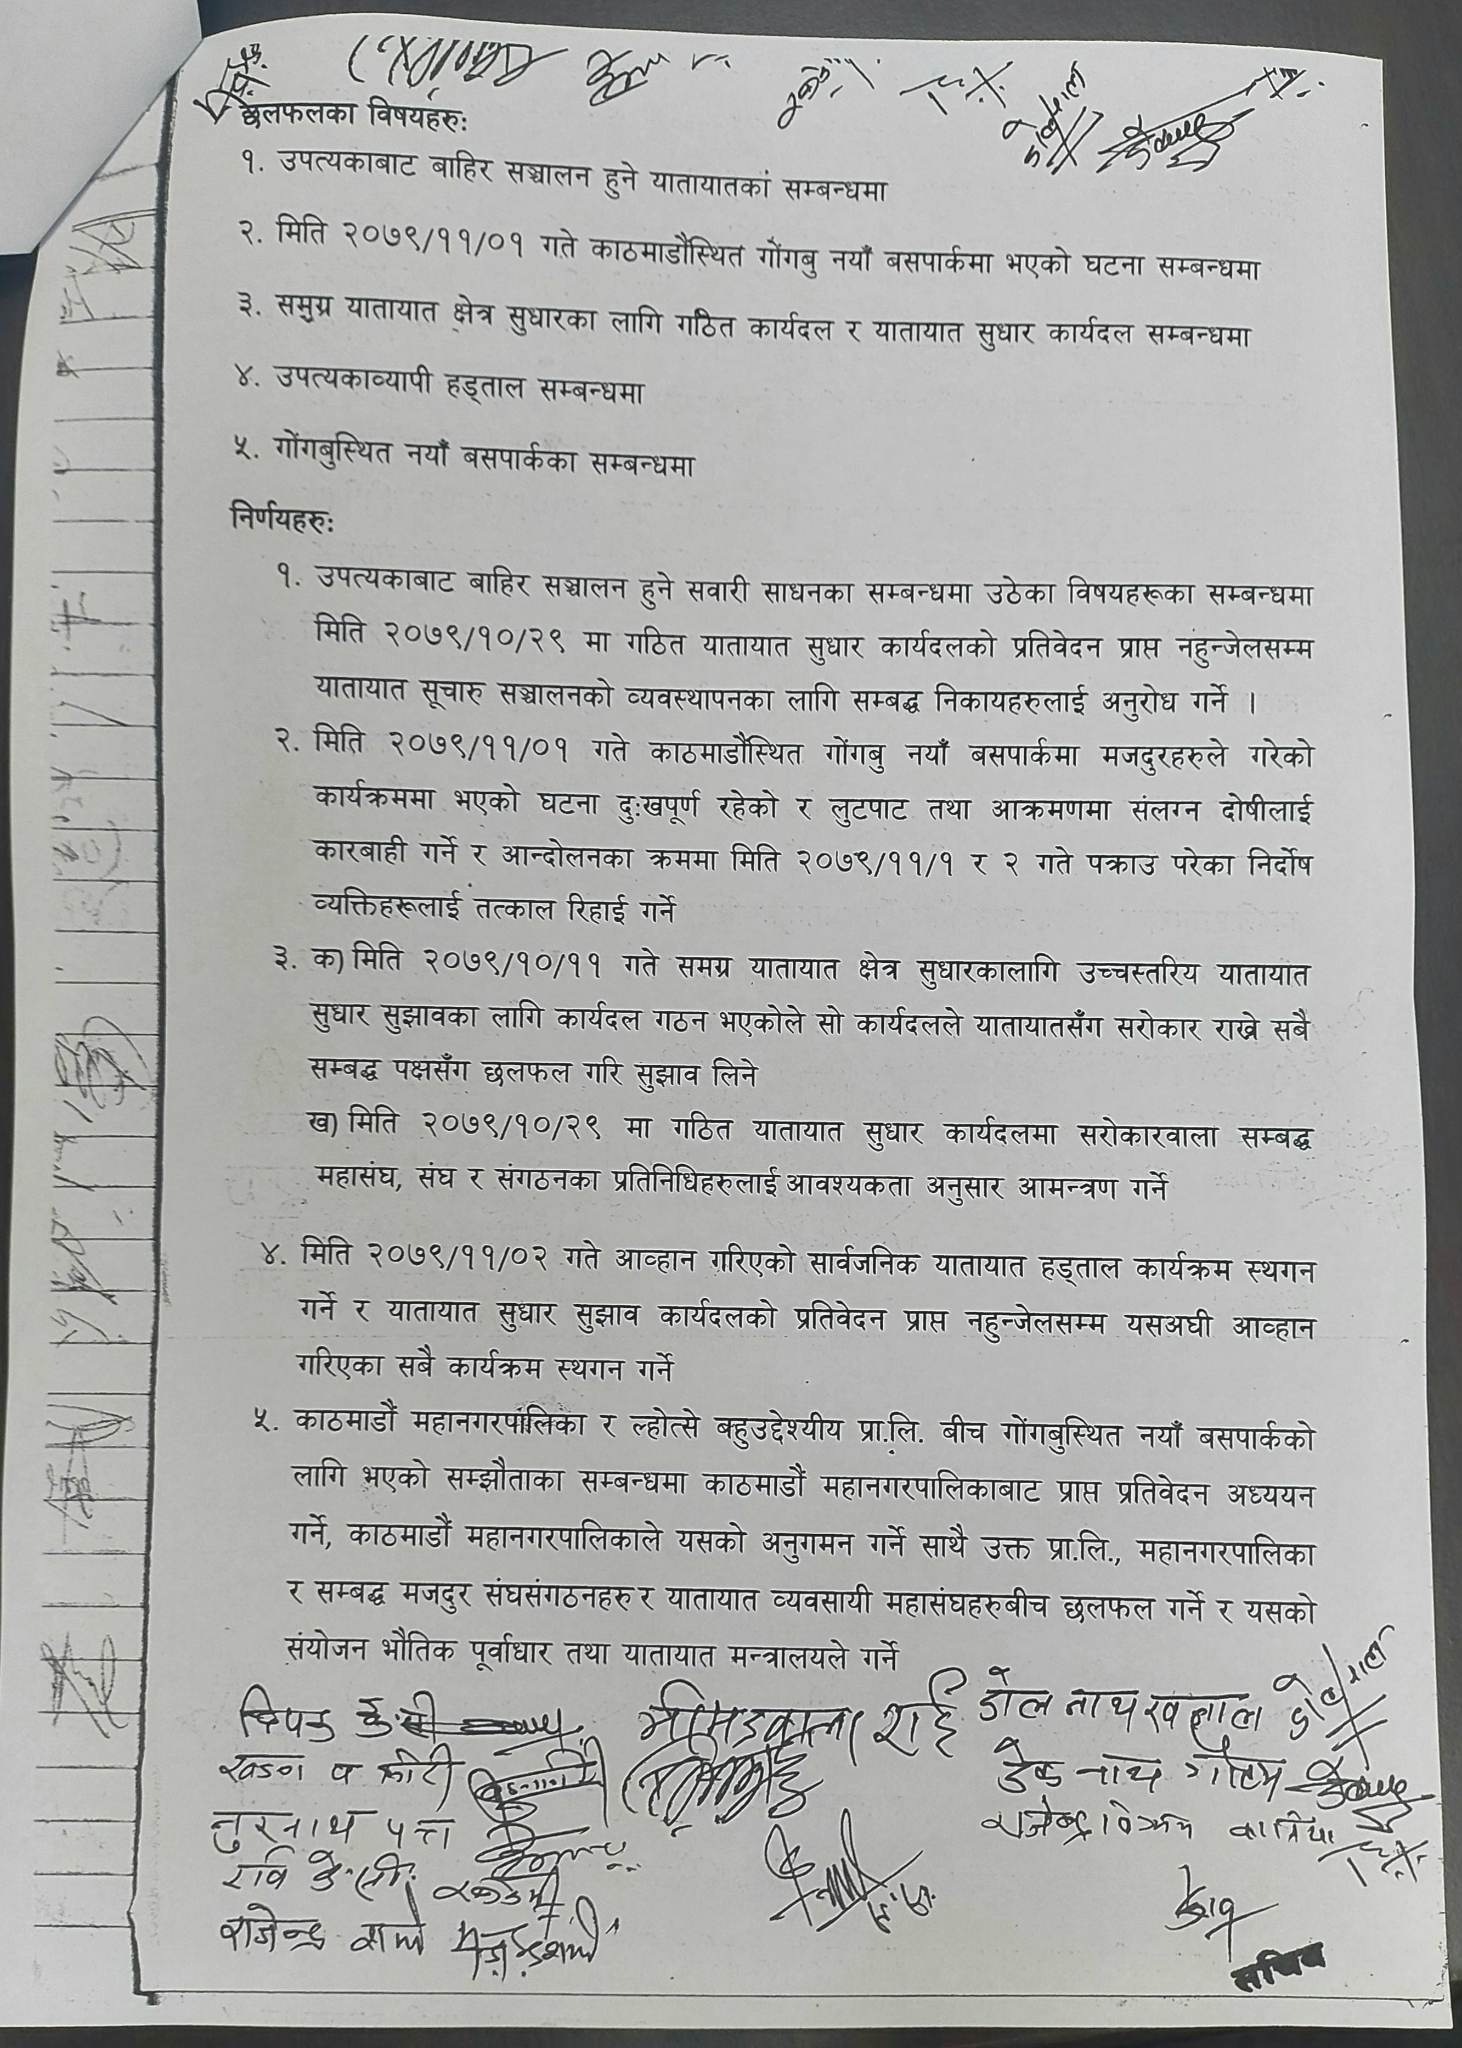 छलफलका विषयहरुः
१. उपत्यकाबाट बाहिर सञ्चालन हुने यातायातका सम्बन्धमा
२. मिति २०७९/११/०१ गते काठमाडौस्थित गोंगबु नयाँ बसपार्कमा भएको घटना सम्बन्धमा
३. समुग्र यातायात क्षेत्र सुधारका लागि गठित कार्यदल र यातायात सुधार कार्यदल सम्बन्धमा
४. उपत्यकाव्यापी हड्ताल सम्बन्धमा
५. गोंगबुस्थित नयाँ बसपार्कका सम्बन्धमा
निर्णयहरुः
१. उपत्यकाबाट बाहिर सञ्चालन हुने सवारी साधनका सम्बन्धमा उठेका विषयहरूका सम्बन्धमा
मिति २०७९/१०/२९ मा गठित यातायात सुधार कार्यदलको प्रतिवेदन प्राप्त नहुन्जेलसम्म
यातायात सूचारु सञ्चालनको व्यवस्थापनका लागि सम्बद्ध निकायहरुलाई अनुरोध गर्ने ।
२. मिति २०७९/११/०१ गते काठमाडौस्थित गोंगबु नयाँ बसपार्कमा मजदुरहरुले गरेको
कार्यक्रममा भएको घटना दुःखपूर्ण रहेको र लुटपाट तथा आक्रमणमा संलग्न दोषीलाई
कारबाही गर्ने र आन्दोलनका क्रममा मिति २०७९/११/१ र २ गते पक्राउ परेका निर्दोष
व्यक्तिहरूलाई तत्काल रिहाई गर्ने
३. क) मिति २०७९/१०/११ गते समग्र यातायात क्षेत्र सुधारकालागि उच्चस्तरिय यातायात
सुधार सुझावका लागि कार्यदल गठन भएकोले सो कार्यदलले यातायातसँग सरोकार राख्ने सबै
सम्बद्ध पक्षसँग छलफल गरि सुझाव लिने
ख) मिति २०७९/१०/२९ मा गठित यातायात सुधार कार्यदलमा सरोकारवाला सम्बद्ध
महासंघ, संघ र संगठनका प्रतिनिधिहरुलाई आवश्यकता अनुसार आमन्त्रण गर्ने
४. मिति २०७९/११/०२ गते आव्हान गरिएको सार्वजनिक यातायात हड्ताल कार्यक्रम स्थगन
गर्ने र यातायात सुधार सुझाव कार्यदलको प्रतिवेदन प्राप्त नहुन्जेलसम्म यसअघी आव्हान
गरिएका सबै कार्यक्रम स्थगन गर्ने
५. काठमाडौं महानगरपालिका र ल्होत्से बहुउद्देश्यीय प्रा.लि. बीच गोंगबुस्थित नयाँ बसपार्कको
लागि भएको सम्झौताका सम्बन्धमा काठमाडौं महानगरपालिकाबाट प्राप्त प्रतिवेदन अध्ययन
गर्ने, काठमाडौं महानगरपालिकाले यसको अनुगमन गर्ने साथै उक्त प्रा.लि., महानगरपालिका
र सम्बद्ध मजदुर संघसंगठनहरु र यातायात व्यवसायी महासंघहरुबीच छलफल गर्ने र यसको
संयोजन भौतिक पूर्वाधार तथा यातायात मन्त्रालयले गर्ने
डोल नाथ खनाल
राजेन्द्र
सचिव